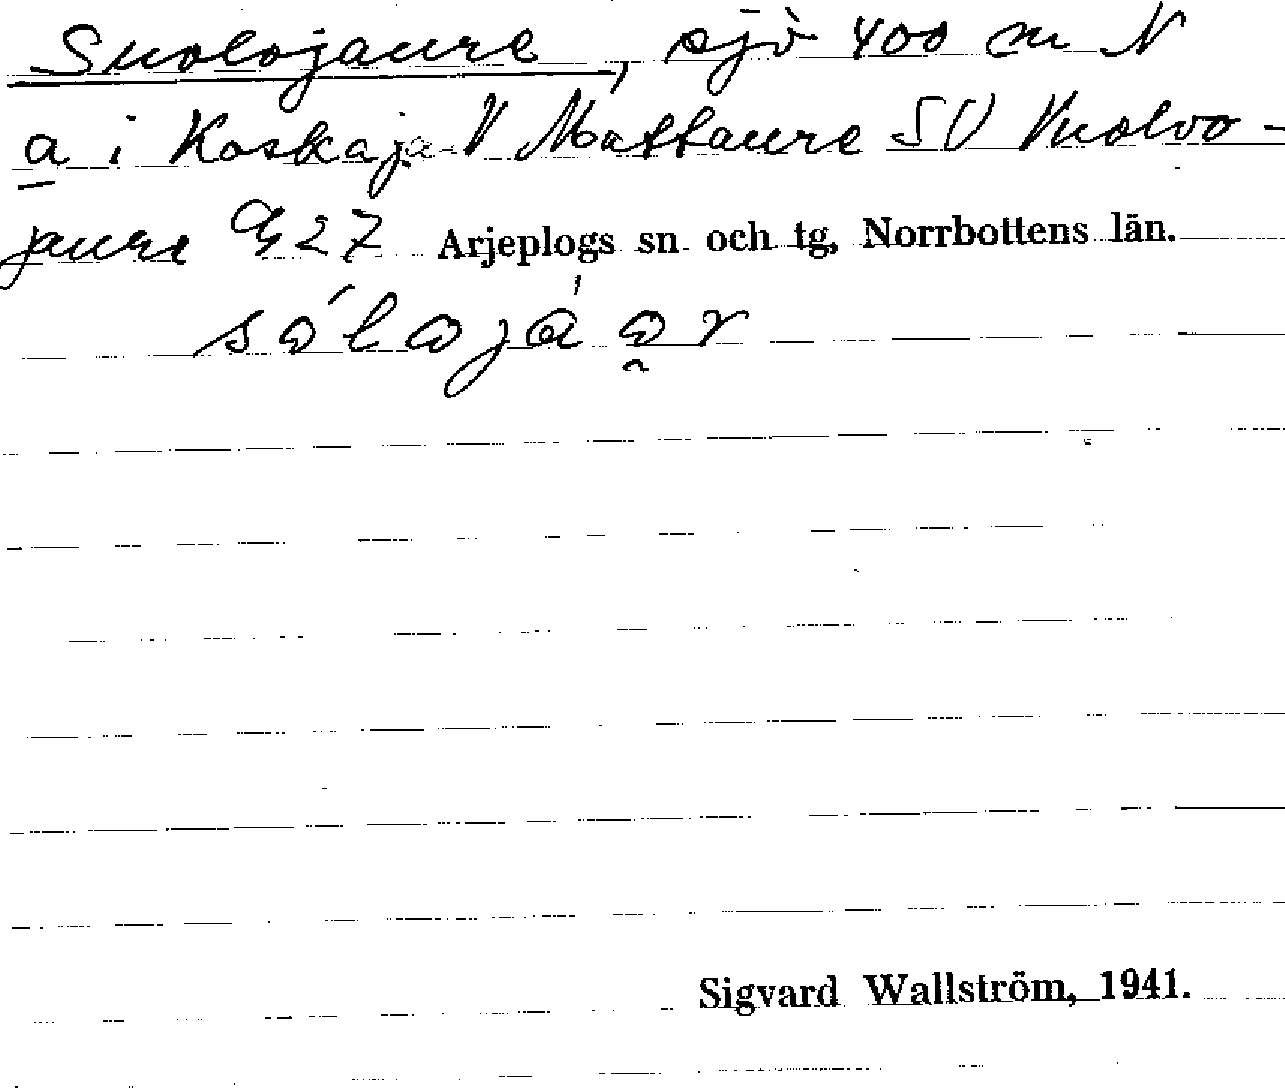 Suolojaure, sjö 400 m N
a i Kaskaja V Mattaure SV Vuolvo-
jaure G 27 Arjeplogs sn och tg, Norrbottens län.
sólojáor
Sigvard Wallström, 1941.